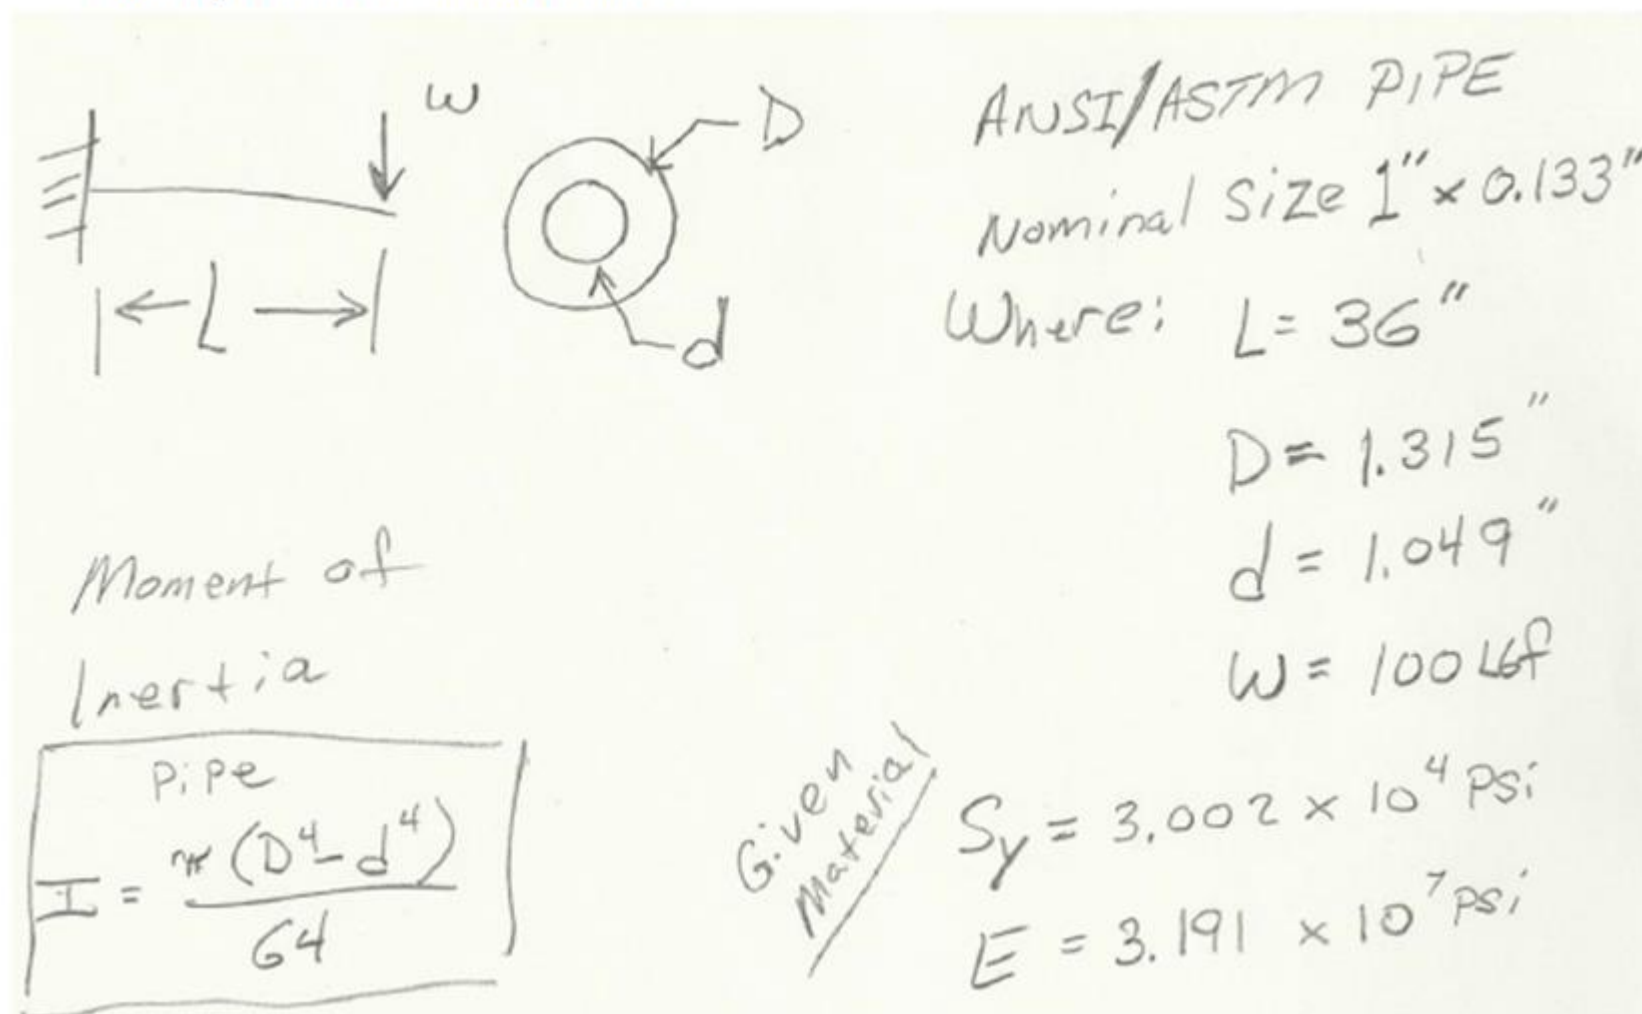 W
D
L
d
ANSI/ASTM PIPE
Nominal Size 1" x 0.133"
Where: L = 36"
D = 1.315"
d = 1.049"
W = 100 Lbf
Moment of
Inertia
Pipe
I = π(D⁴-d⁴)
64
Given
Material
Sy = 3.002 x 10⁴ psi
E = 3.191 x 10⁷ psi